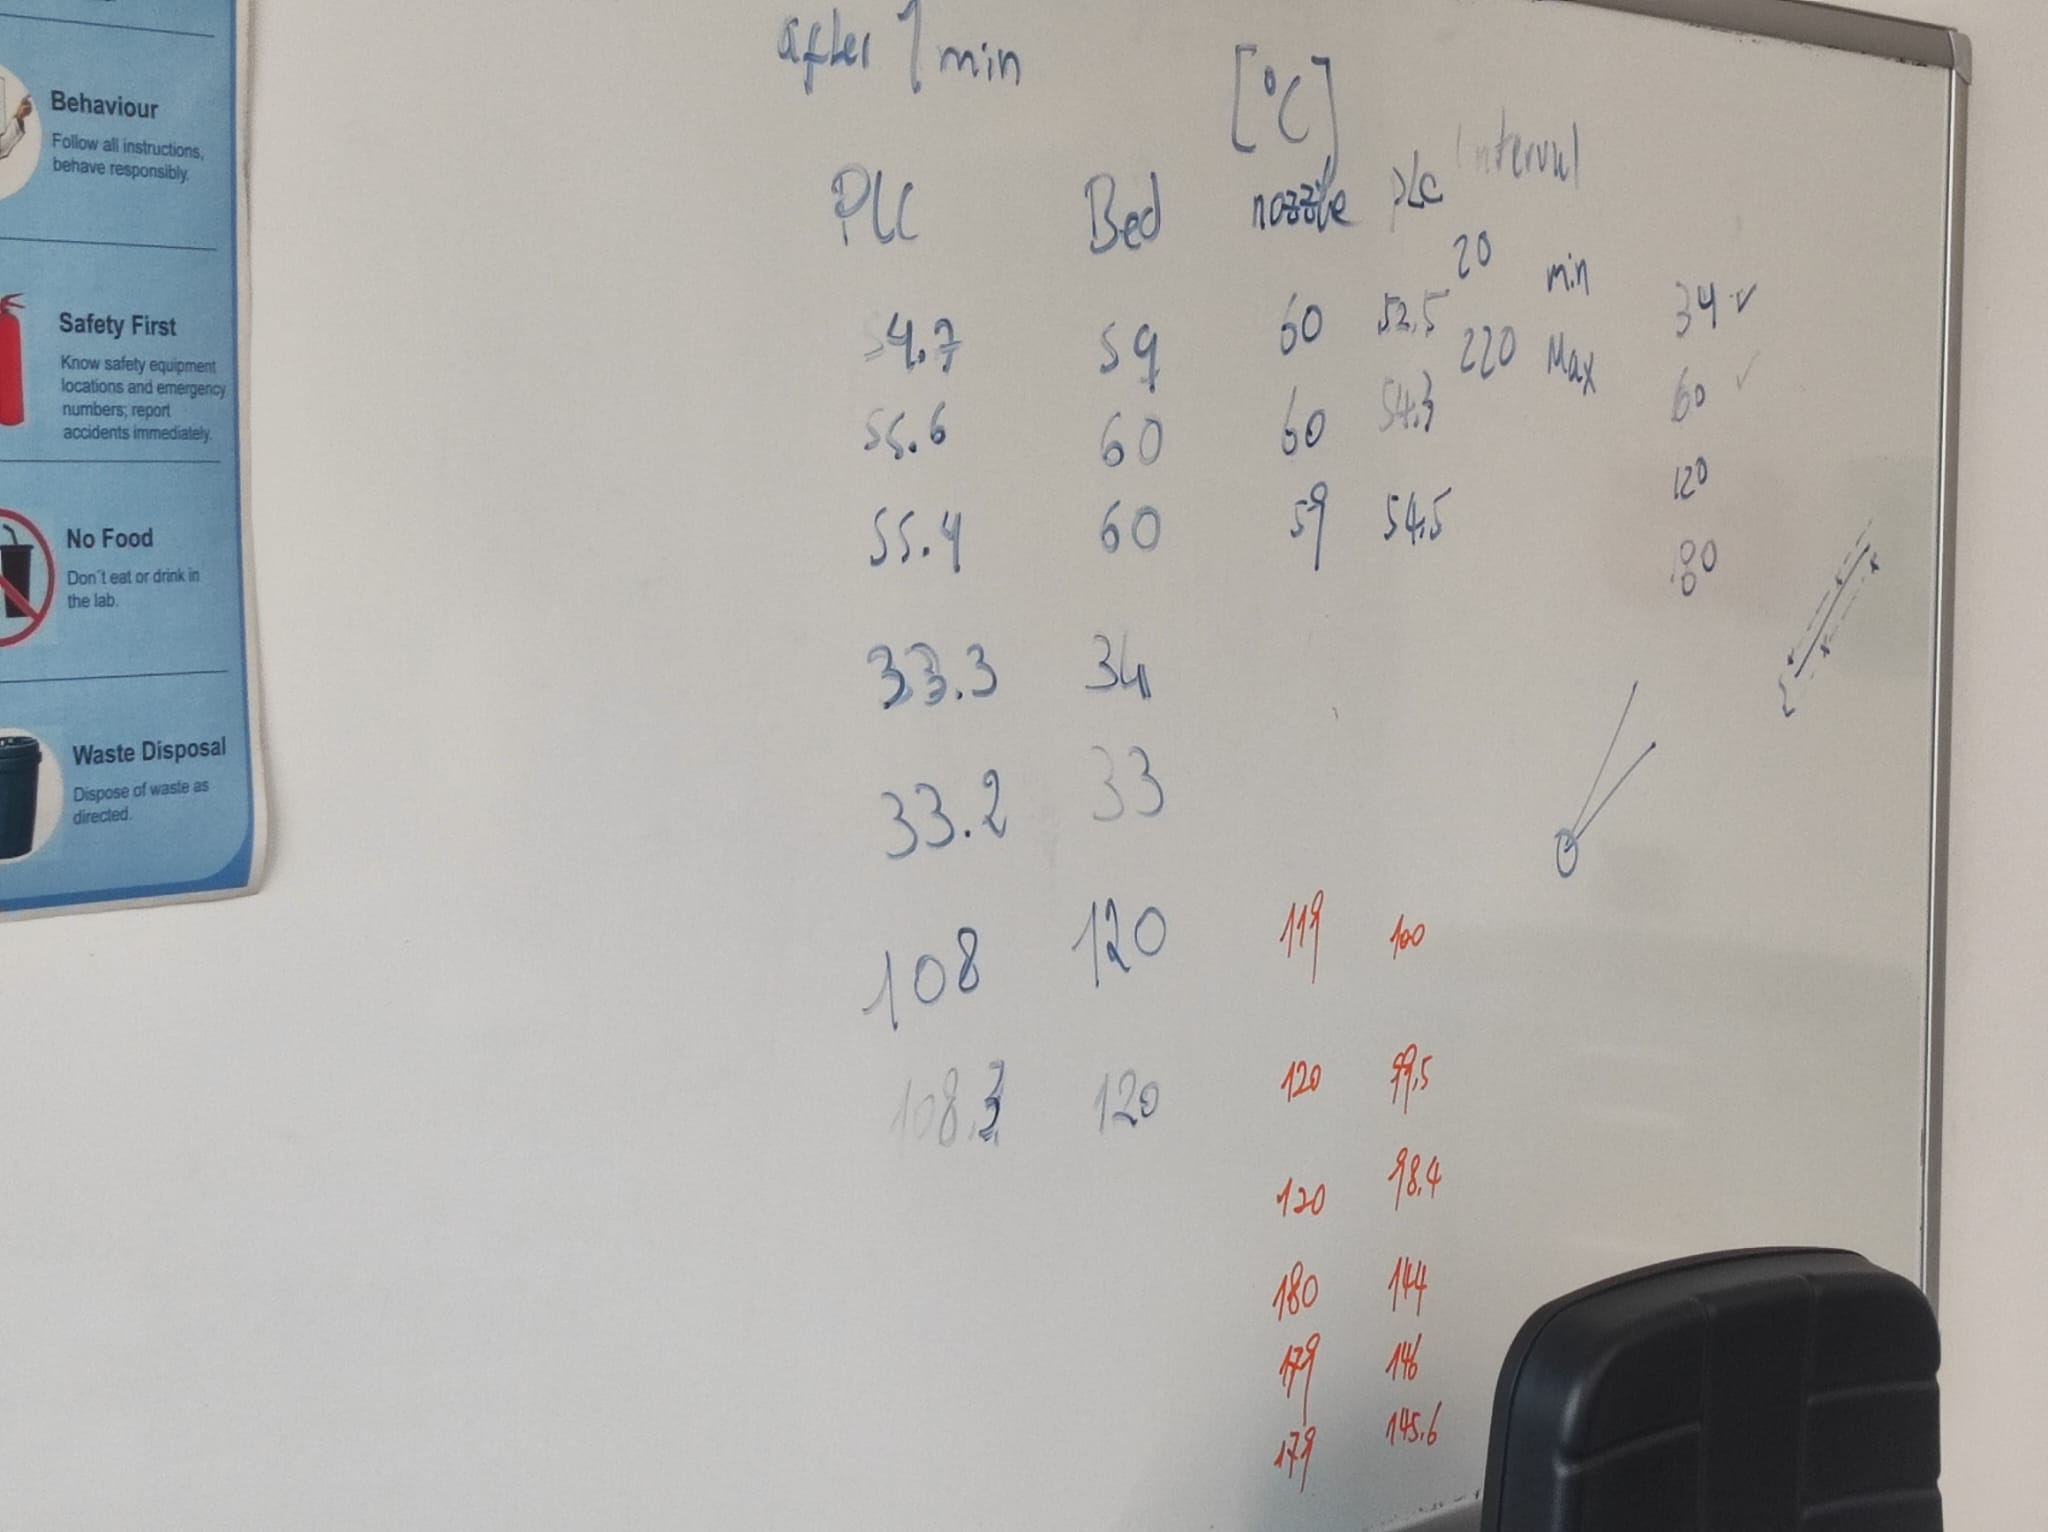 Behaviour
Follow all instructions,
behave responsibly.
Safety First
Know safety equipment
locations and emergency
numbers; report
accidents immediately.
No Food
Don't eat or drink in
the lab.
Waste Disposal
Dispose of waste as
directed.
after 1 min
[°C]
PLC Bed nozzle PLC Interval
54.7 59 60 52.5
55.6 60 60 54.3
55.4 60 59 54.5
33.3 34
33.2 33
108 120 119 100
108.3 120 120 99.5
120 98.4
180 144
179 146
179 145.6
20 min
220 Max
34 ✓
60 ✓
120
180